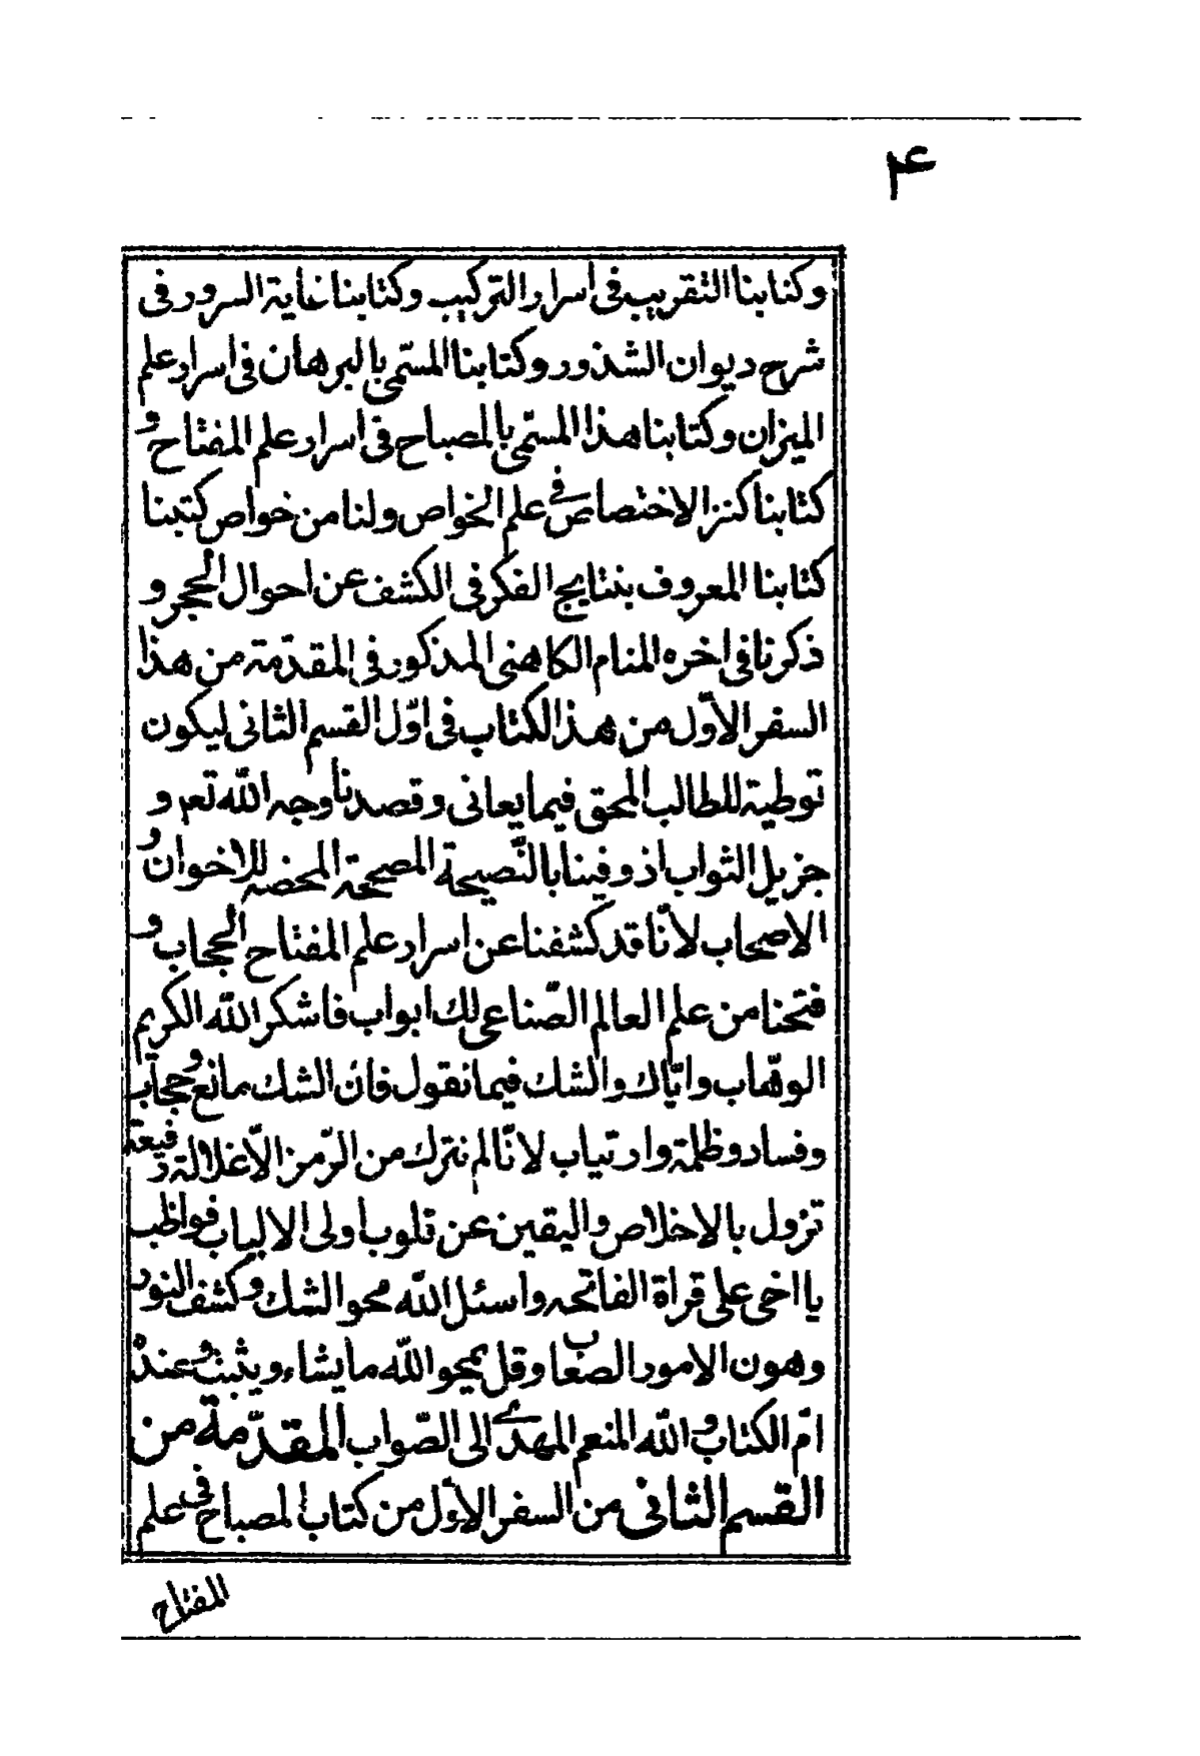 ۴
وكتابنا التقريب فى اسرار التركيب وكتابنا غاية السرور فى
شرح ديوان الشذور وكتابنا المسمّى بالبرهان فى اسرار علم
الميزان وكتابنا هذا المسمّى بالمصباح فى اسرار علم المفتاح و
كتابنا كنز الاختصاص فى علم الخواص ولنا من خواص كتبنا
كتابنا المعروف بنتايج الفكر فى الكشف عن احوال الحجر و
ذكرنا فى اخره المنام الكاهنى المذكور فى المقدّمة من هذا
السفر الاوّل من هذ الكتاب فى اوّل القسم الثانى ليكون
توطية للطالب المحق فيما يعانى وقصدنا وجه الله تعم و
جزيل الثواب اذ وفينا بالنّصيحة المصححة المحضه للاخوان و
الاصحاب لانّا قد كشفنا عن اسرار علم المفتاح الحجاب و
فتحنا من علم العالم الصّناعى لك ابواب فاشكر الله الكريم
الوهّاب وايّاك والشك فيما نقول فان الشك مانع وحجاب
وفساد وظلمة وارتياب لانّا لم نترك من الرّمز الّا غلالة رفيعة
تزول بالاخلاص واليقين عن قلوب اولى الالباب فواظب
يا اخى على قراة الفاتحه واسئل الله محو الشك وكشف النور
وهون الامور الصعاب وقل يمحو الله ما يشاء ويثبت وعنده
امّ الكتاب والله المنعم المهدى الى الصّواب المقدّمة من
القسم الثانى من السفر الاوّل من كتاب المصباح فى علم
المفتاح